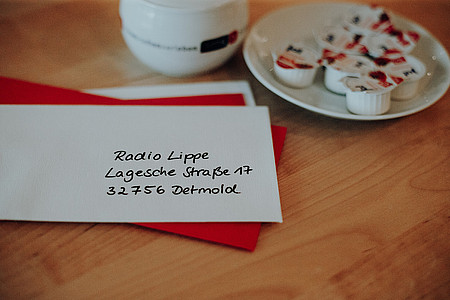 Radio Lippe
Lagesche Straße 17
32756 Detmold